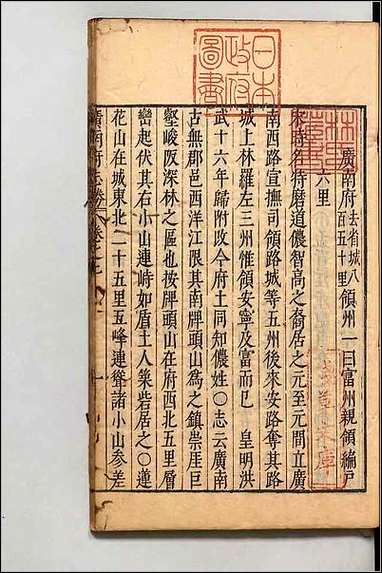 日本
政府
圖書
林氏
藏書
淺草文庫
廣南府去省城八百五十里領州一曰富州親領編戶
六里
宋時名特磨道儂智高之裔居之元至元間立廣
南西路宣撫司領路城等五州後來安路奪其路
城上林羅左三州惟領安寧及富而已　皇明洪
武十六年歸附改今府土同知儂姓○志云廣南
古無郡邑西洋江限其南牌頭山為之鎮崇崖巨
壑峻阪深林之區也按牌頭山在府西北五里層
巒起伏其右小山連峙如盾土人築砦居之○蓮
花山在城東北二十五里五峰連聳諸小山參差